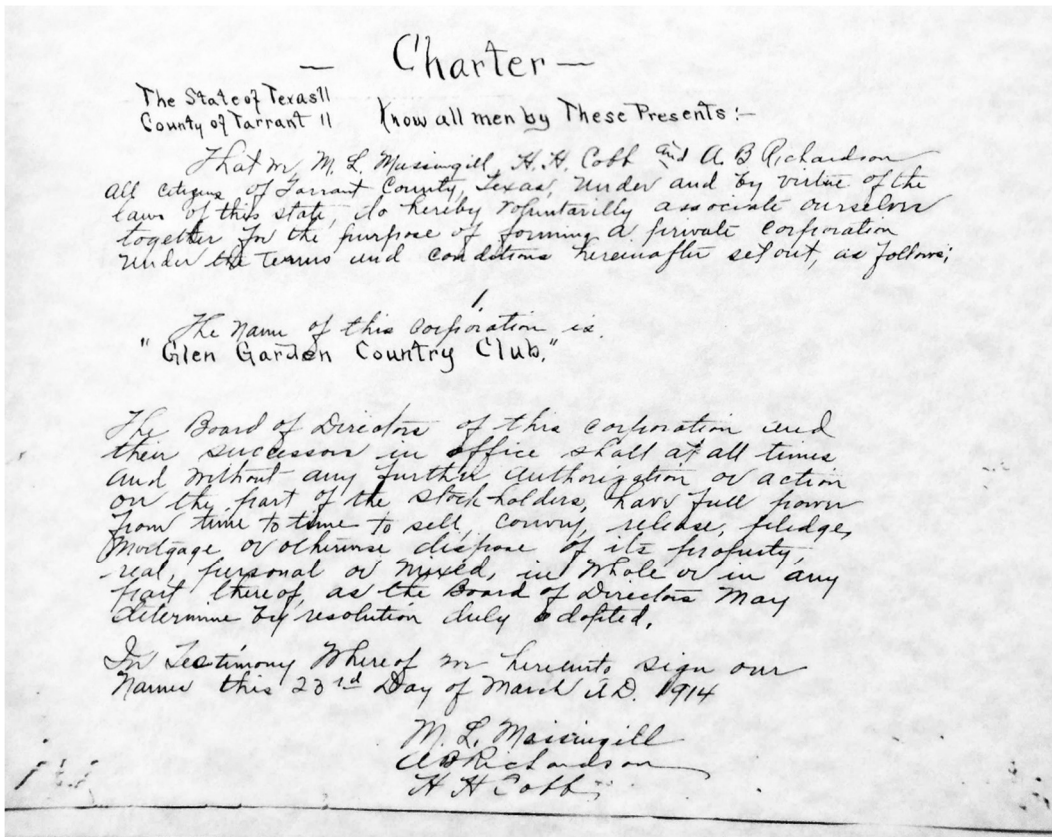 — Charter —
The State of Texas ||
County of Tarrant || Know all men by These Presents:—
That we M. L. Massingill, H. H. Cobb and A. B Richardson
all citizens of Tarrant County, Texas, under and by virtue of the
laws of this state, do hereby voluntarilly associate ourselves
together for the purpose of forming a private corporation
under the terms and conditions hereinafter set out, as follows;
1.
The name of this corporation is
"Glen Garden Country Club."
The Board of Directors of this corporation and
their successors in office shall at all times
and without any further authorization or action
on the part of the stock holders, have full power
from time to time to sell, convey, release, pledge,
mortgage, or otherwise dispose of its property,
real, personal or mixed, in whole or in any
part thereof, as the Board of Directors may
determine by resolution duly adopted.
In Testimony Whereof we hereunto sign our
Names this 23rd Day of March A.D. 1914
M. L. Massingill
A B Richardson
H H Cobb